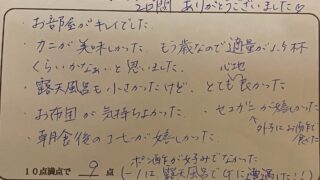 2日間 ありがとうございました
・お部屋がキレイでした
・カニが美味しかった もう歳なので適量が1.5杯
くらいかなぁいと思いました。 心地
・露天風呂も小さかったけど、とても良かった
・お布団が気持ちよかった ・セコガニが嬉しかった
・朝食後のコーヒーが嬉しかった
10点満点で 9 点 ポン酢が好みでなかった
(-1は 露天風呂で